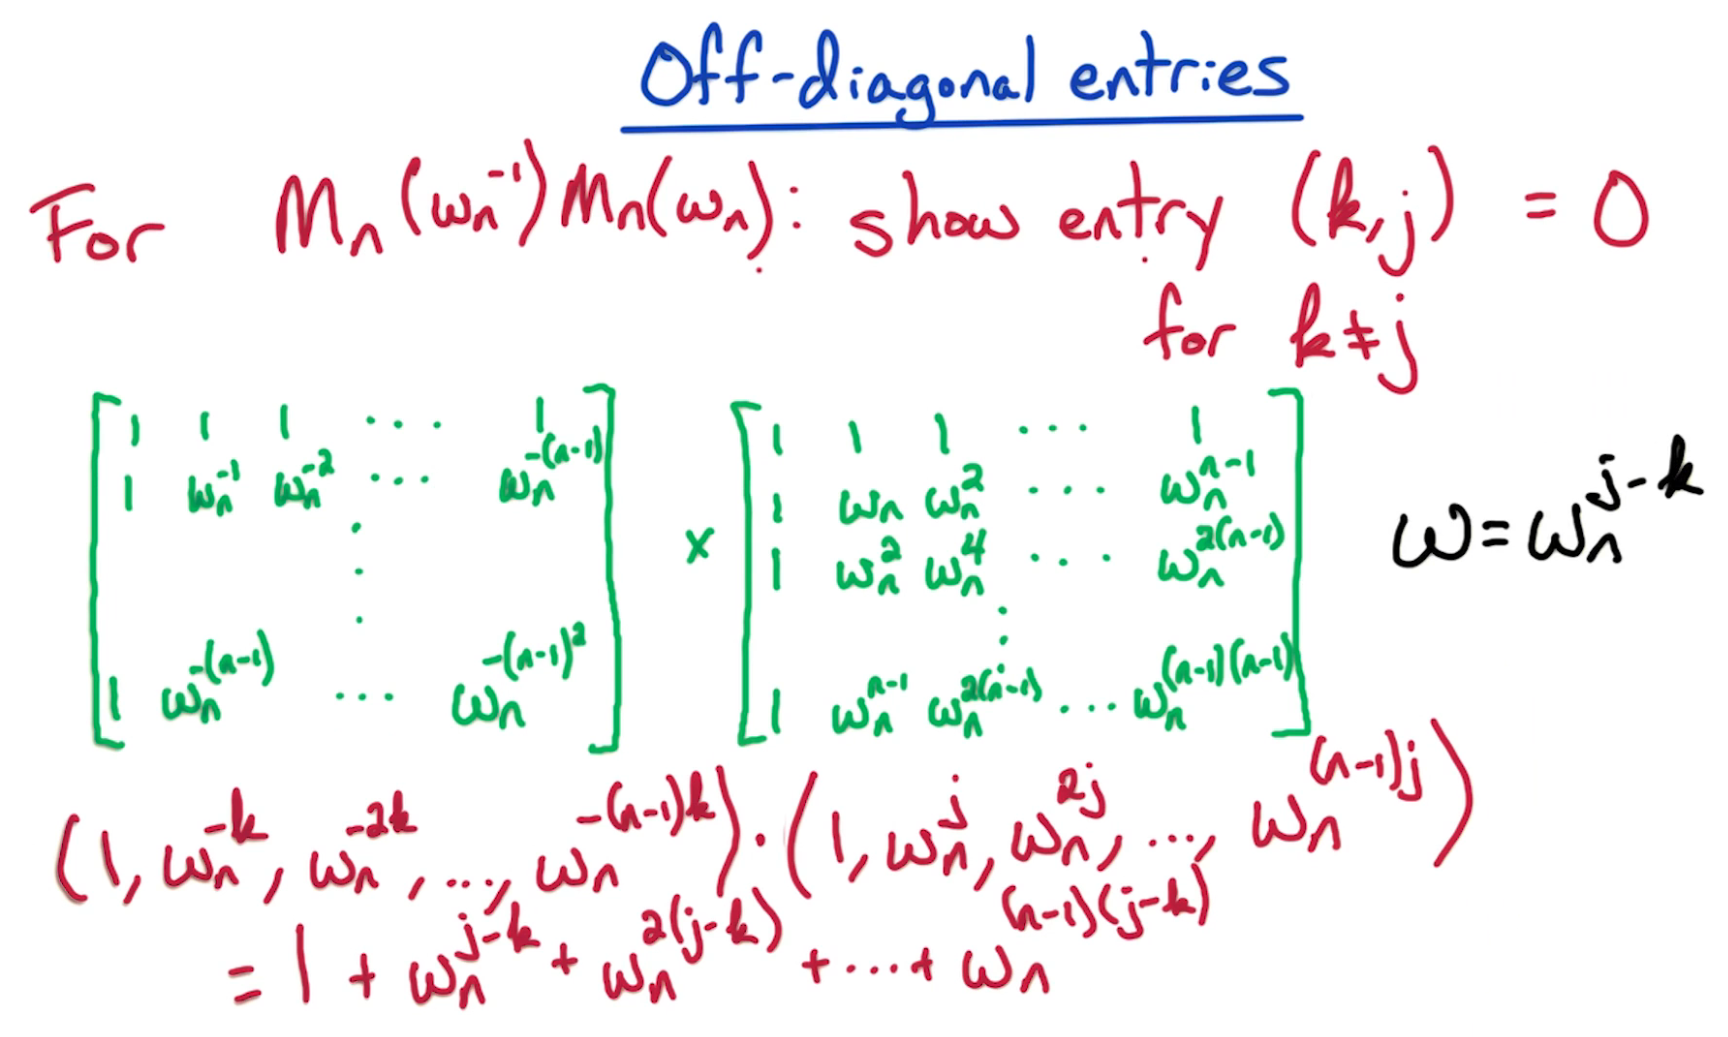 Off-diagonal entries
For Mₙ(ωₙ⁻¹)Mₙ(ωₙ): show entry (k,j) = 0
for k≠j
[ 1 1 1 ... 1 ] × [ 1 1 1 ... 1 ]
[ 1 ωₙ^-1 ωₙ^-2 ... ωₙ^-(n-1) ] [ 1 ωₙ ωₙ^2 ... ωₙ^n-1 ]
[ 1 ωₙ^2 ωₙ^4 ... ωₙ^2(n-1) ]
[ 1 ωₙ^-(n-1) ... ωₙ^-(n-1)^2 ] [ 1 ωₙ^n-1 ωₙ^2(n-1) ... ωₙ^(n-1)(n-1) ]
ω = ωₙ^j-k
(1, ωₙ^-k, ωₙ^-2k, ..., ωₙ^-(n-1)k) · (1, ωₙ^j, ωₙ^2j, ..., ωₙ^(n-1)j)
= 1 + ωₙ^j-k + ωₙ^2(j-k) + ... + ωₙ^(n-1)(j-k)